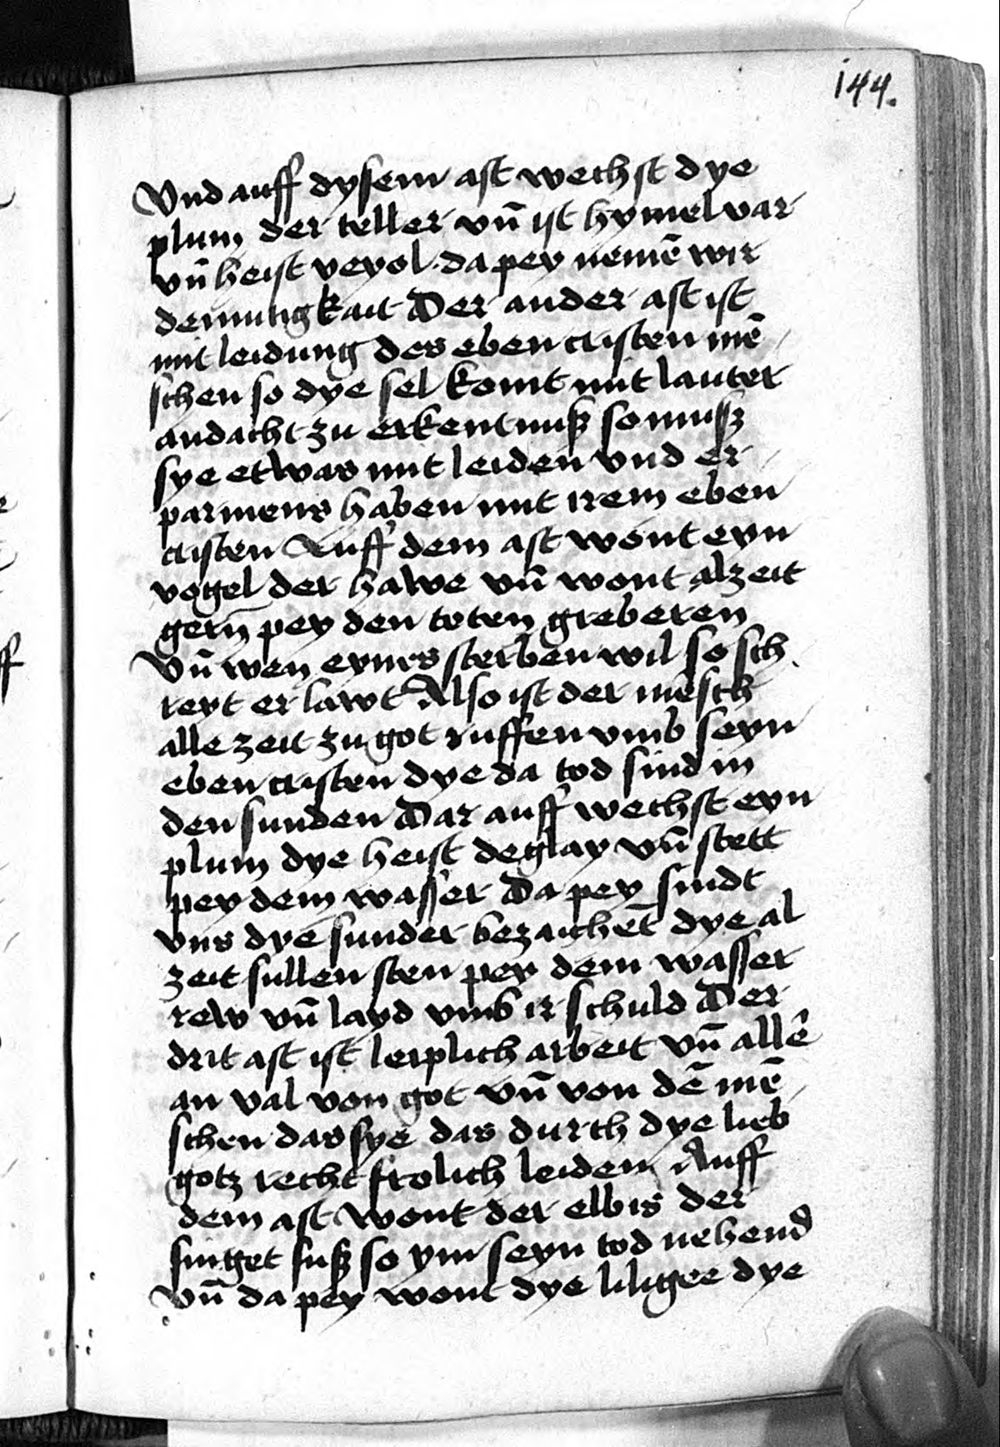 144.
Vnd auff dysem ast wechst dye
plum der teller vn̄ ist hymel var
vn̄ heist veyol · da pey nemē wir
demutigkait Der ander ast ist
mit leidung des eben cristen mē
schen so dye sel komt mit lauter
andacht zu erkentnuß so muß
sye etwas mit leiden vnd er
parmens haben mit irem eben
cristen Auff dem ast wont eyn
vogel der hawe vn̄ wont alzeit
gern̄ pey den toten greberen
Vn̄ wen eyners sterben wil so sch
reyt er lawt Also ist der mēsch
alle zeit zu got ruffen vmb seyn
eben cristen dye da tod sind in
den sunden Dar auff wechst eyn
plum dye heist deglay vn̄ stett
pey dem wasser Da pey sindt
vns dye sunder bezaichēt dye al
zeit sullen sten pey dem wasser
rew vn̄ layd vmb ir schuld Der
drit ast ist leiplich arbeit vn̄ allē
an val von got vn̄ von dē mē
schen das sye das durch dye lieb
gotz recht frolich leiden Auff
dem ast wont der elbis der
singet suß so ym seyn tod nehend
Vn̄ da pey wont dye liligee dye